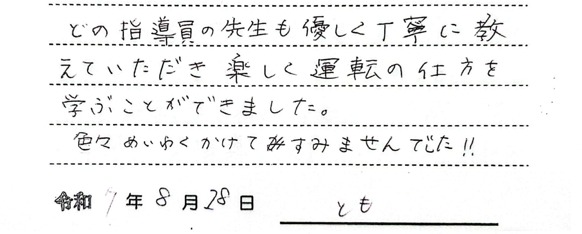 どの指導員の先生も優しく丁寧に教
えていただき楽しく運転の仕方を
学ぶことができました。
色々めいわくかけてすみませんでした!!
令和7年8月28日 とも